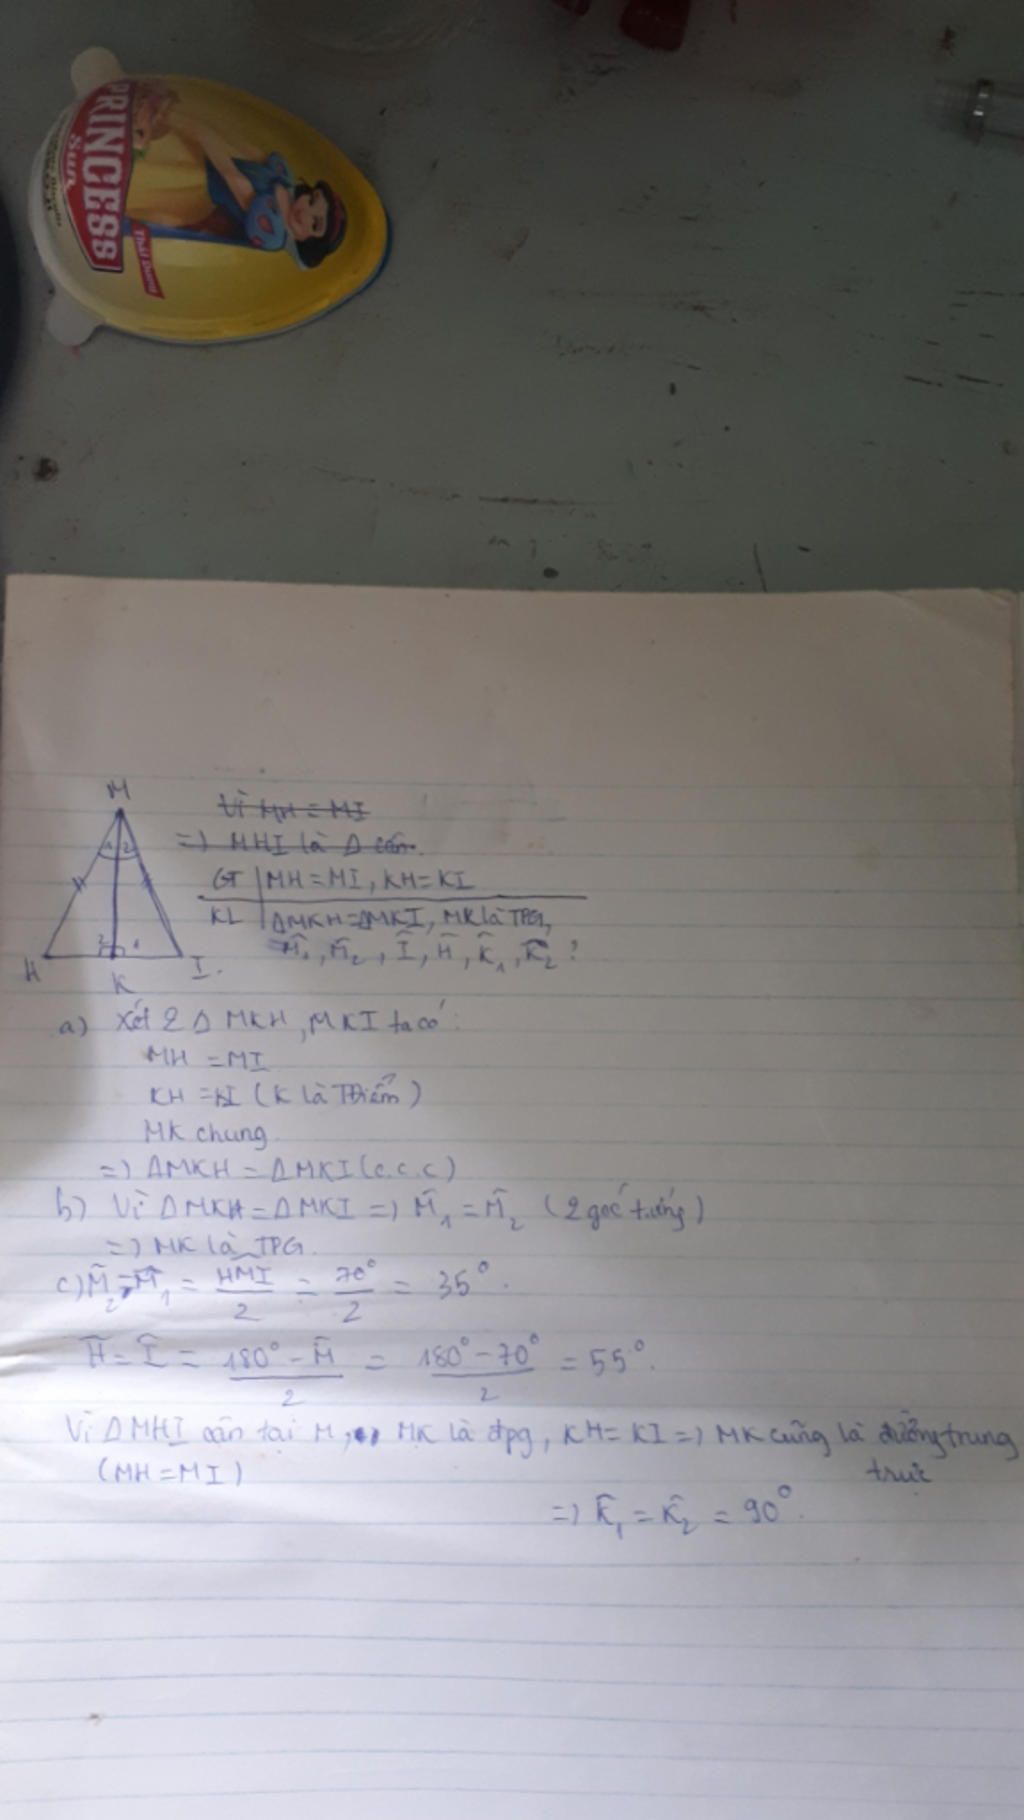 PRINCESS
Sun
Thái Dương
M
1 2
2 1
H
K
I
Vì MH = MI
=) MHI là Δ cân.
GT | MH = MI, KH = KI
KL | ΔMKH = ΔMKI, MK là TPG,
M̂₁, M̂₂, Î, Ĥ, K̂₁, K̂₂ ?
a) Xét 2 Δ MKH, MKI ta có:
MH = MI
KH = KI (K là Tđiểm)
MK chung
=) ΔMKH = ΔMKI (c.c.c)
b) Vì ΔMKH = ΔMKI =) M̂₁ = M̂₂ (2 góc tướng)
=) MK là TPG.
c) M̂₂ = M̂₁ = HMI/2 = 70°/2 = 35°.
Ĥ = Î = (180° - M̂)/2 = (180° - 70°)/2 = 55°.
Vì ΔMHI cân tại M, MK là đpg, KH = KI =) MK cũng là đường trung
(MH = MI) trực
=) K̂₁ = K̂₂ = 90°.